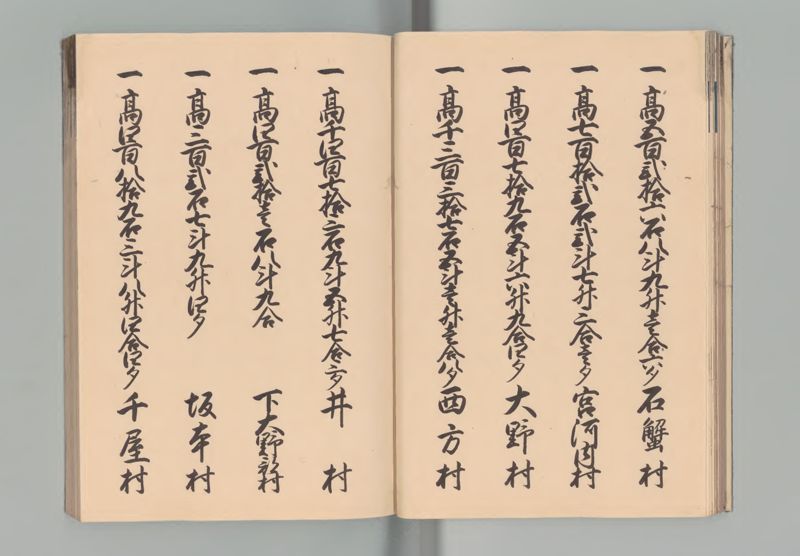 一 高五百弐拾六石八斗九升壱合六夕 石蟹村
一 高七百拾弐石弐斗七升二合壱夕 宮河内村
一 高四百七拾九石五斗六升九合四夕 大野村
一 高千三百三拾七石五斗壱升壱合八夕 西方村
一 高千四百七拾二石九斗五升七合 井村
一 高四百弐拾壱石八斗九合 下大野部村
一 高三百弐石七斗九升四夕 坂本村
一 高四百八拾九石三斗八升四合四夕 千屋村